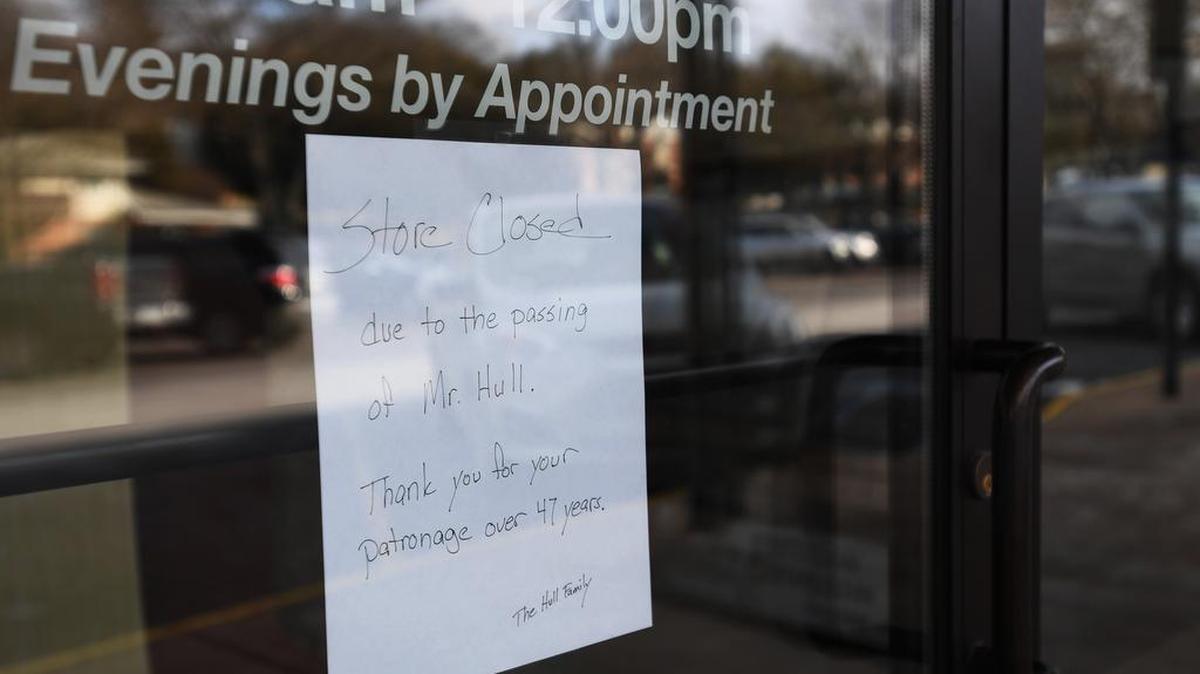 12:00pm
Evenings by Appointment
Store Closed
due to the passing
of Mr. Hull.
Thank you for your
patronage over 47 years.
The Hull Family